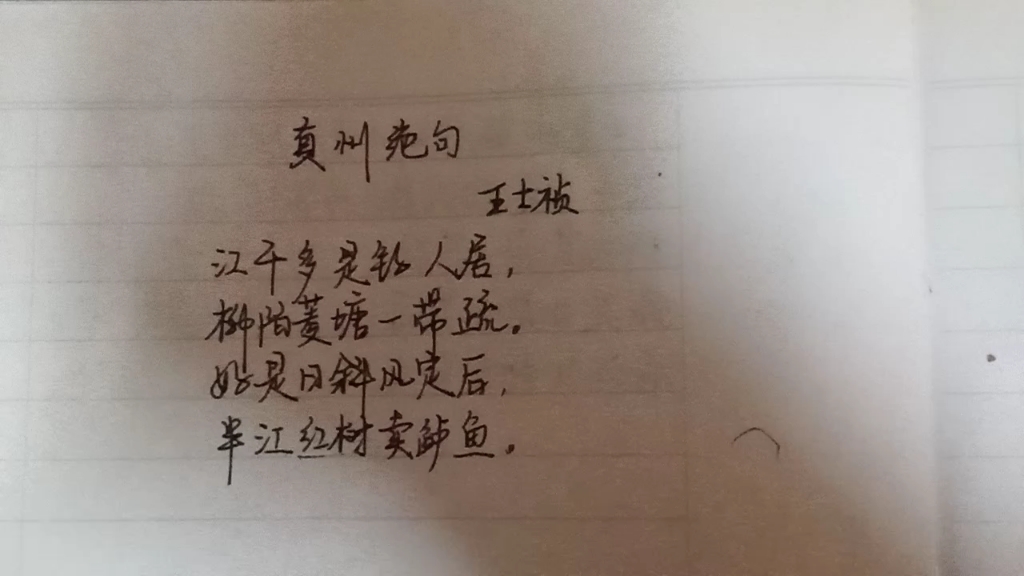 真州绝句
王士祯
江干多是钓人居，
柳陌菱塘一带疏。
好是日斜风定后，
半江红树卖鲈鱼。